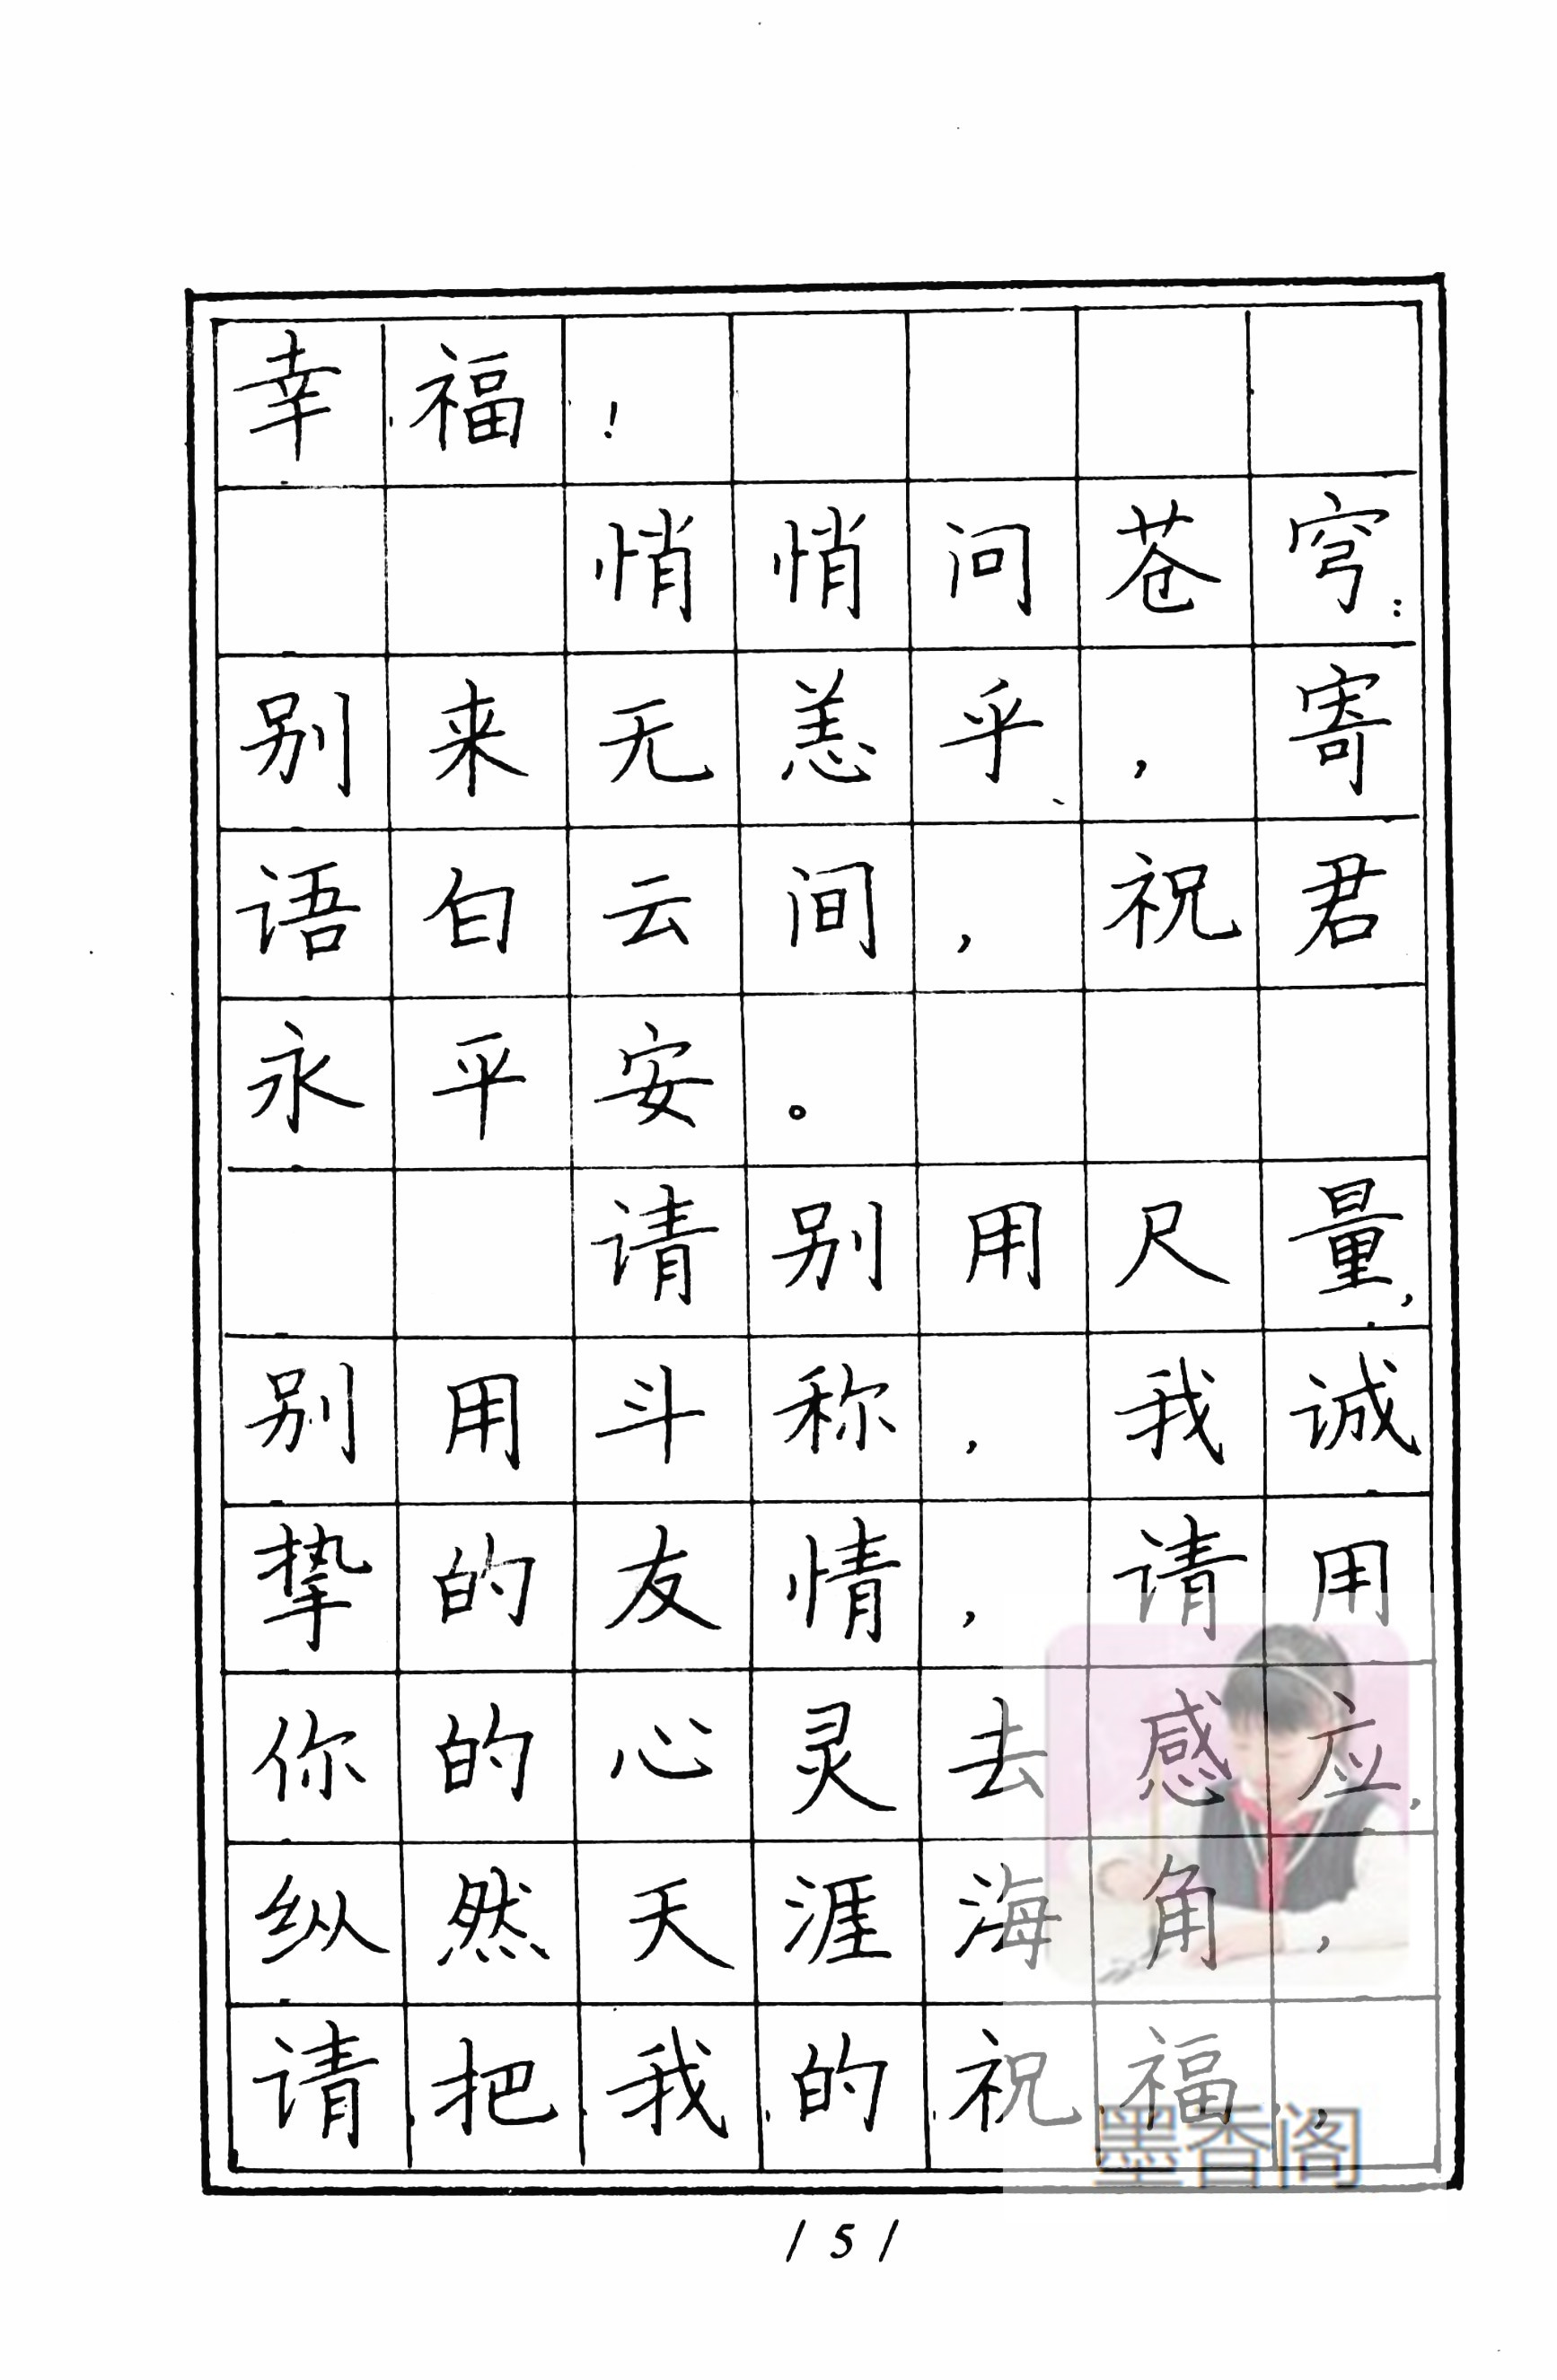 幸福！
悄悄问苍穹：
别来无恙乎，寄
语白云间，祝君
永平安。
请别用尺量，
别用斗称，我诚
挚的友情，请用
你的心灵去感应，
纵然天涯海角，
请把我的祝福，
墨香阁
151